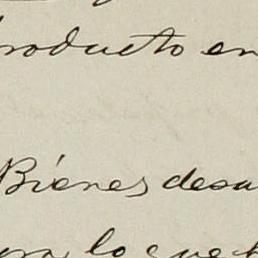 producto en
Bienes desa
lo que